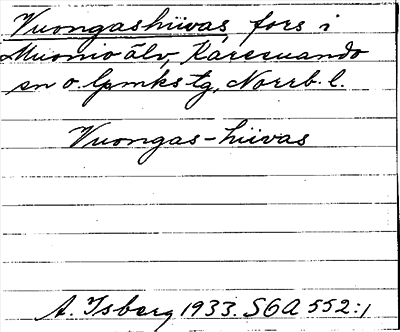 Vuongashiivas fors i
Muonio älv, Karesuando
sn o. lpmks tg, Norrb. l.
Vuongas-hiivas
A. Isberg 1933. SOA 552:1